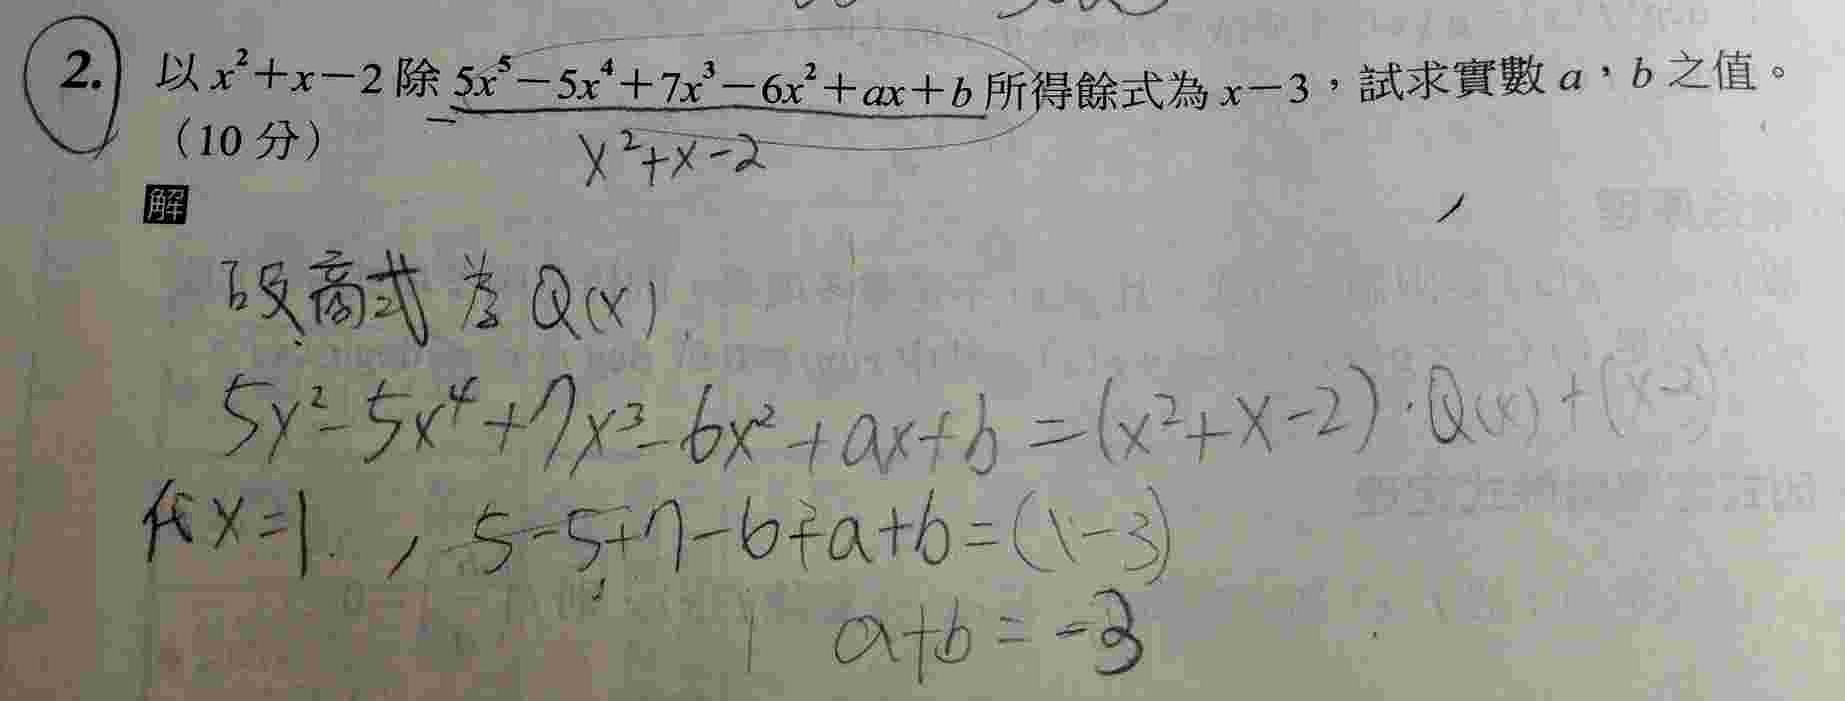 2. 以 x²+x−2 除 5x⁵−5x⁴+7x³−6x²+ax+b 所得餘式為 x−3，試求實數 a，b 之值。
（10 分）
x²+x-2
解
設商式為 Q(x)
5x²-5x⁴+7x³-6x²+ax+b=(x²+x-2)·Q(x)+(x-3)
代x=1, 5-5+7-6+a+b=(1-3)
a+b=-3